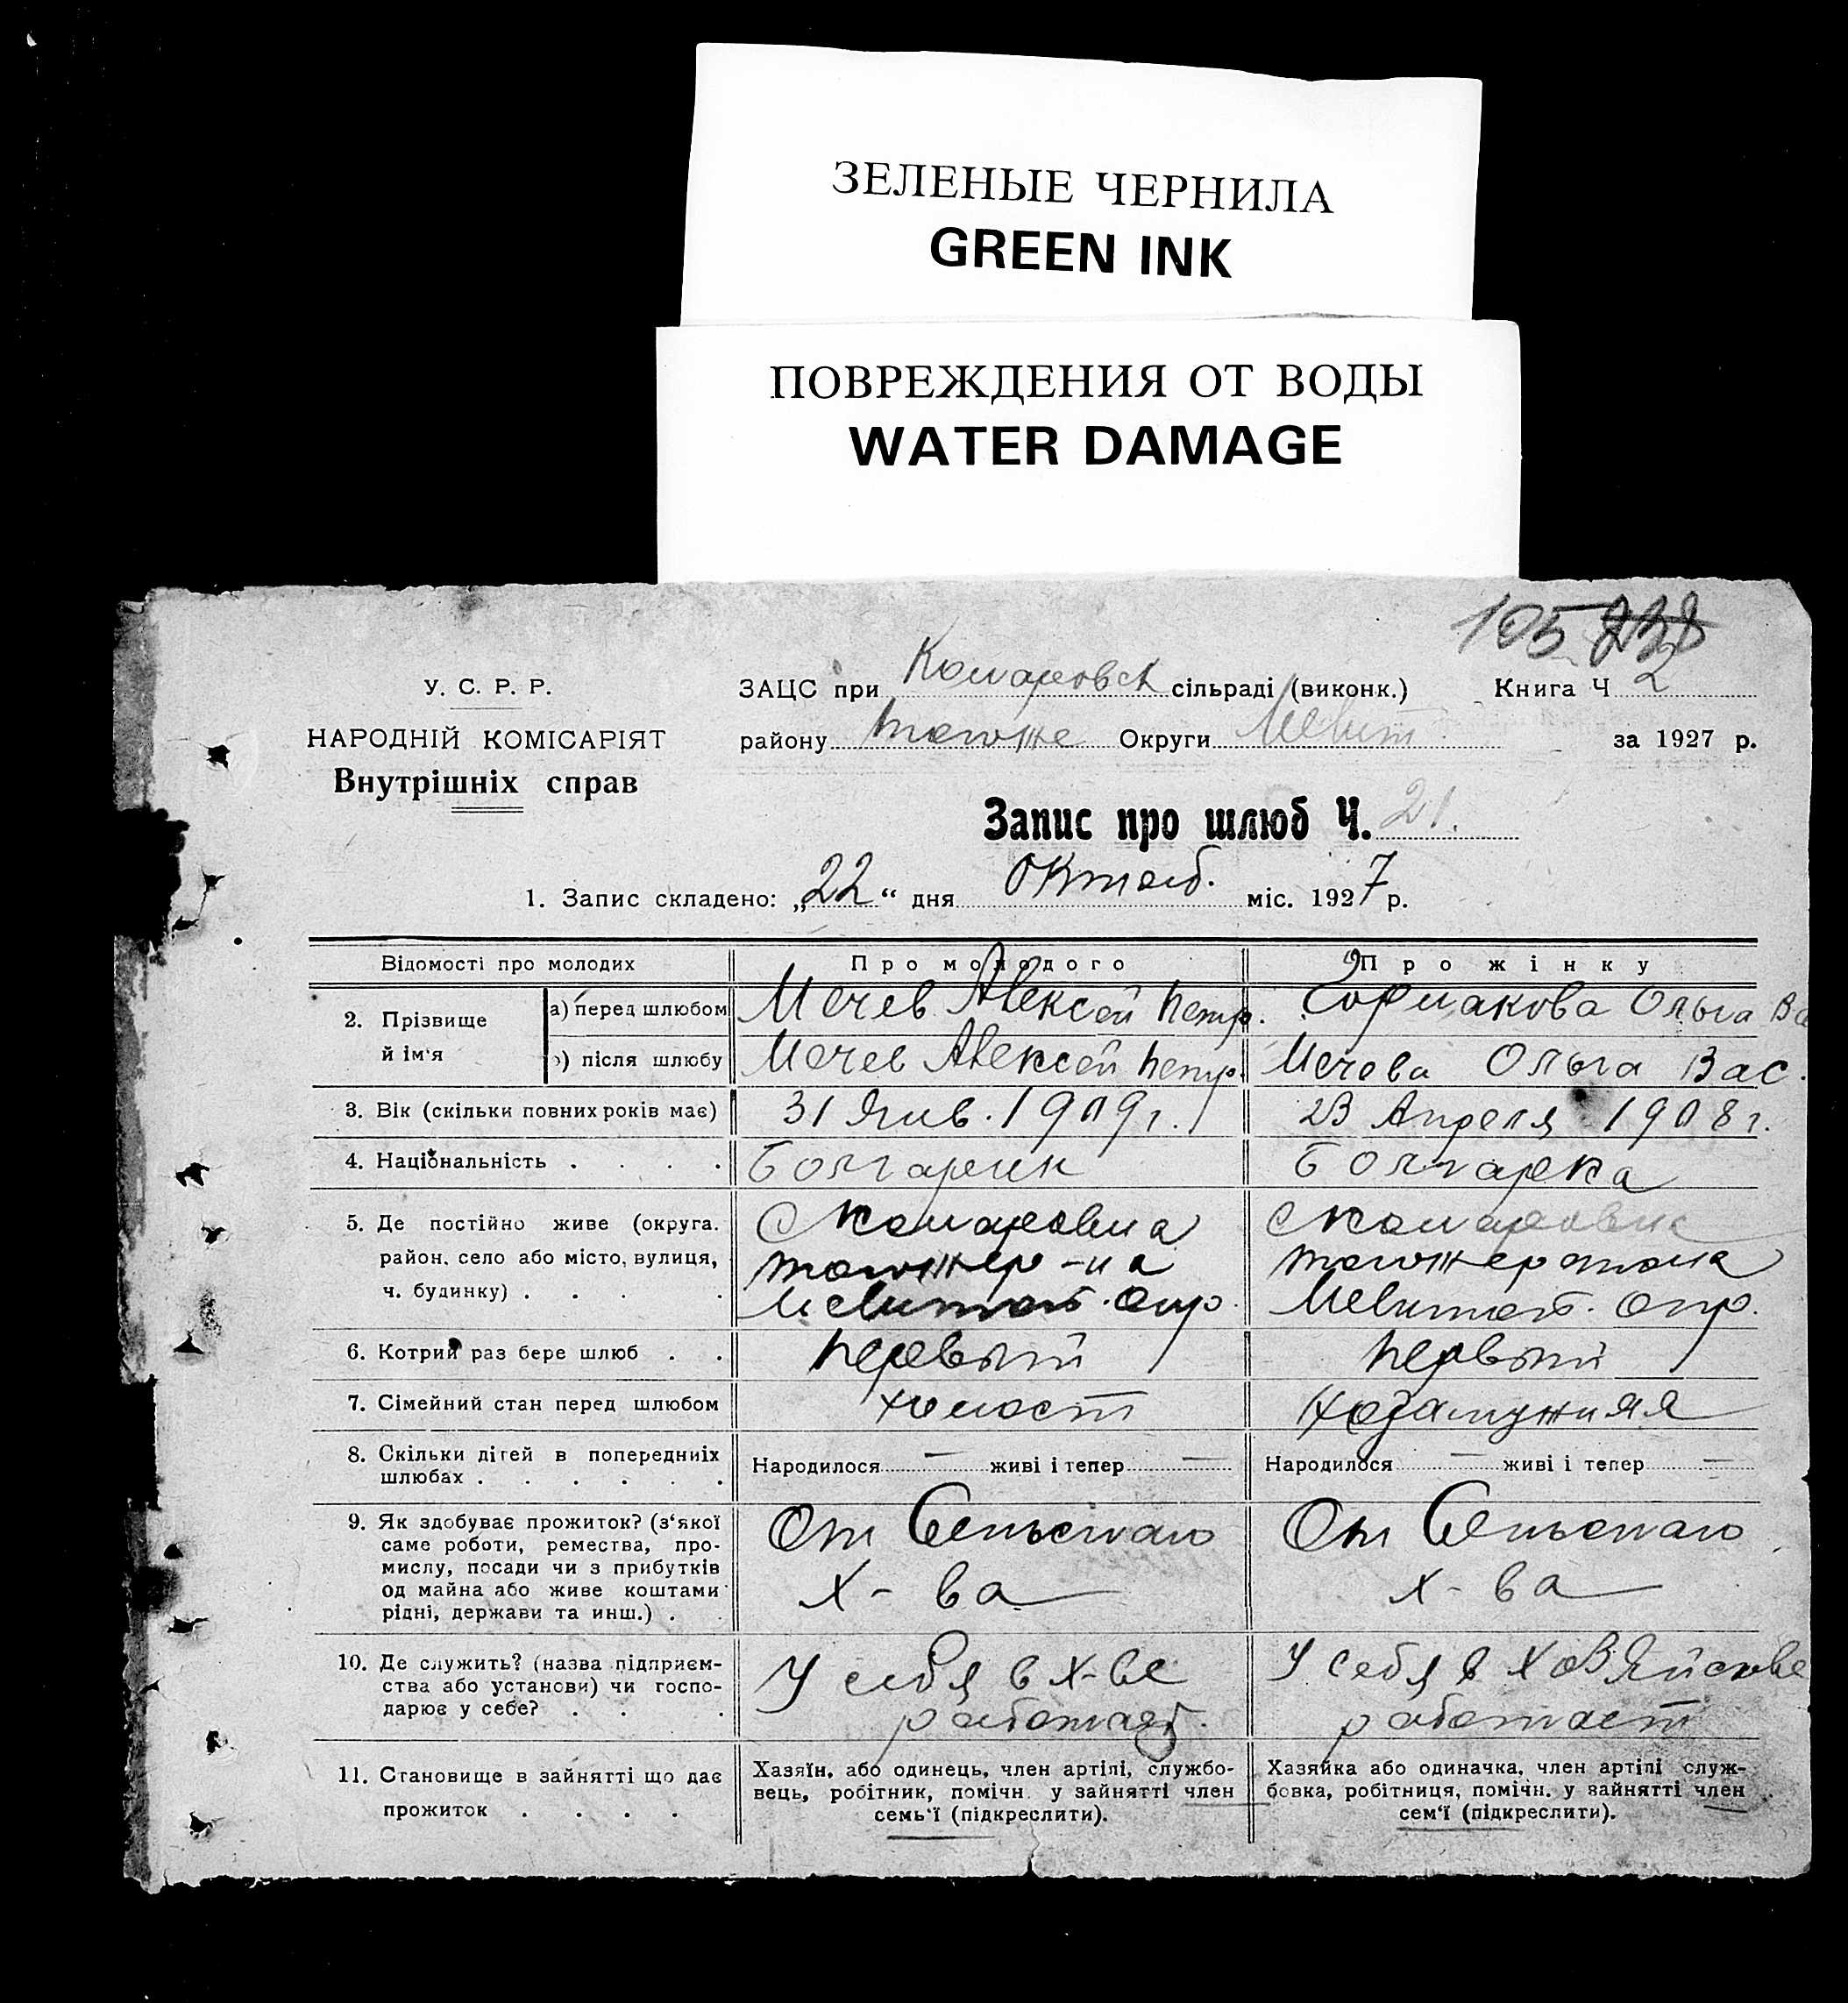 ЗЕЛЕНЫЕ ЧЕРНИЛА
GREEN INK
ПОВРЕЖДЕНИЯ ОТ ВОДЫ
WATER DAMAGE
105 238
У. С. Р. Р.
НАРОДНІЙ КОМІСАРІЯТ
Внутрішніх справ
ЗАЦС при Комаровск сільраді (виконк.) Книга Ч 2
району тогоже Округи Мелит за 1927 р.
Запис про шлюб Ч. 21.
1. Запис складено: „22“ дня Октяб. міс. 1927 р.
Відомості про молодих Про молодого Про жінку
2. Прізвище й ім‘я
а) перед шлюбом Мечев Алексей Петр. Ольга Ва
) після шлюбу Мечев Алексей Петр. Мечева Ольга Вас.
3. Вік (скільки повних років має) 31 Янв. 1909 г. 23 Апреля 1908 г.
4. Національність . . . . Болгарин Болгарка
5. Де постійно живе (округа.
район, село або місто, вулиця,
ч. будинку) . . . .
С Комаровка
тогоже р-на
Мелитоп. Окр.
С Комаровка
тогоже района
Мелитоп. Окр.
6. Котрий раз бере шлюб . . Первый Первый
7. Сімейний стан перед шлюбом холост Незамужняя
8. Скільки дітей в попередніх
шлюбах . . . . . .
Народилося — живі і тепер — Народилося — живі і тепер —
9. Як здобуває прожиток? (з‘якої
саме роботи, ремества, про-
мислу, посади чи з прибутків
од майна або живе коштами
рідні, держави та инш.) . .
От Сельского
х-ва
От Сельского
х-ва
10. Де служить? (назва підприєм-
ства або установи) чи госпо-
дарює у себе? . . .
У себя в х-ве
работает.
У себя в хозяйстве
работает
11. Становище в зайнятті що дає
прожиток . . . .
Хазяїн, або одинець, член артілі, службо-
вець, робітник, помічн. у зайнятті член
семь‘ї (підкреслити).
Хазяйка або одиначка, член артілі служ-
бовка, робітниця, помічн. у зайнятті член
сем‘ї (підкреслити).